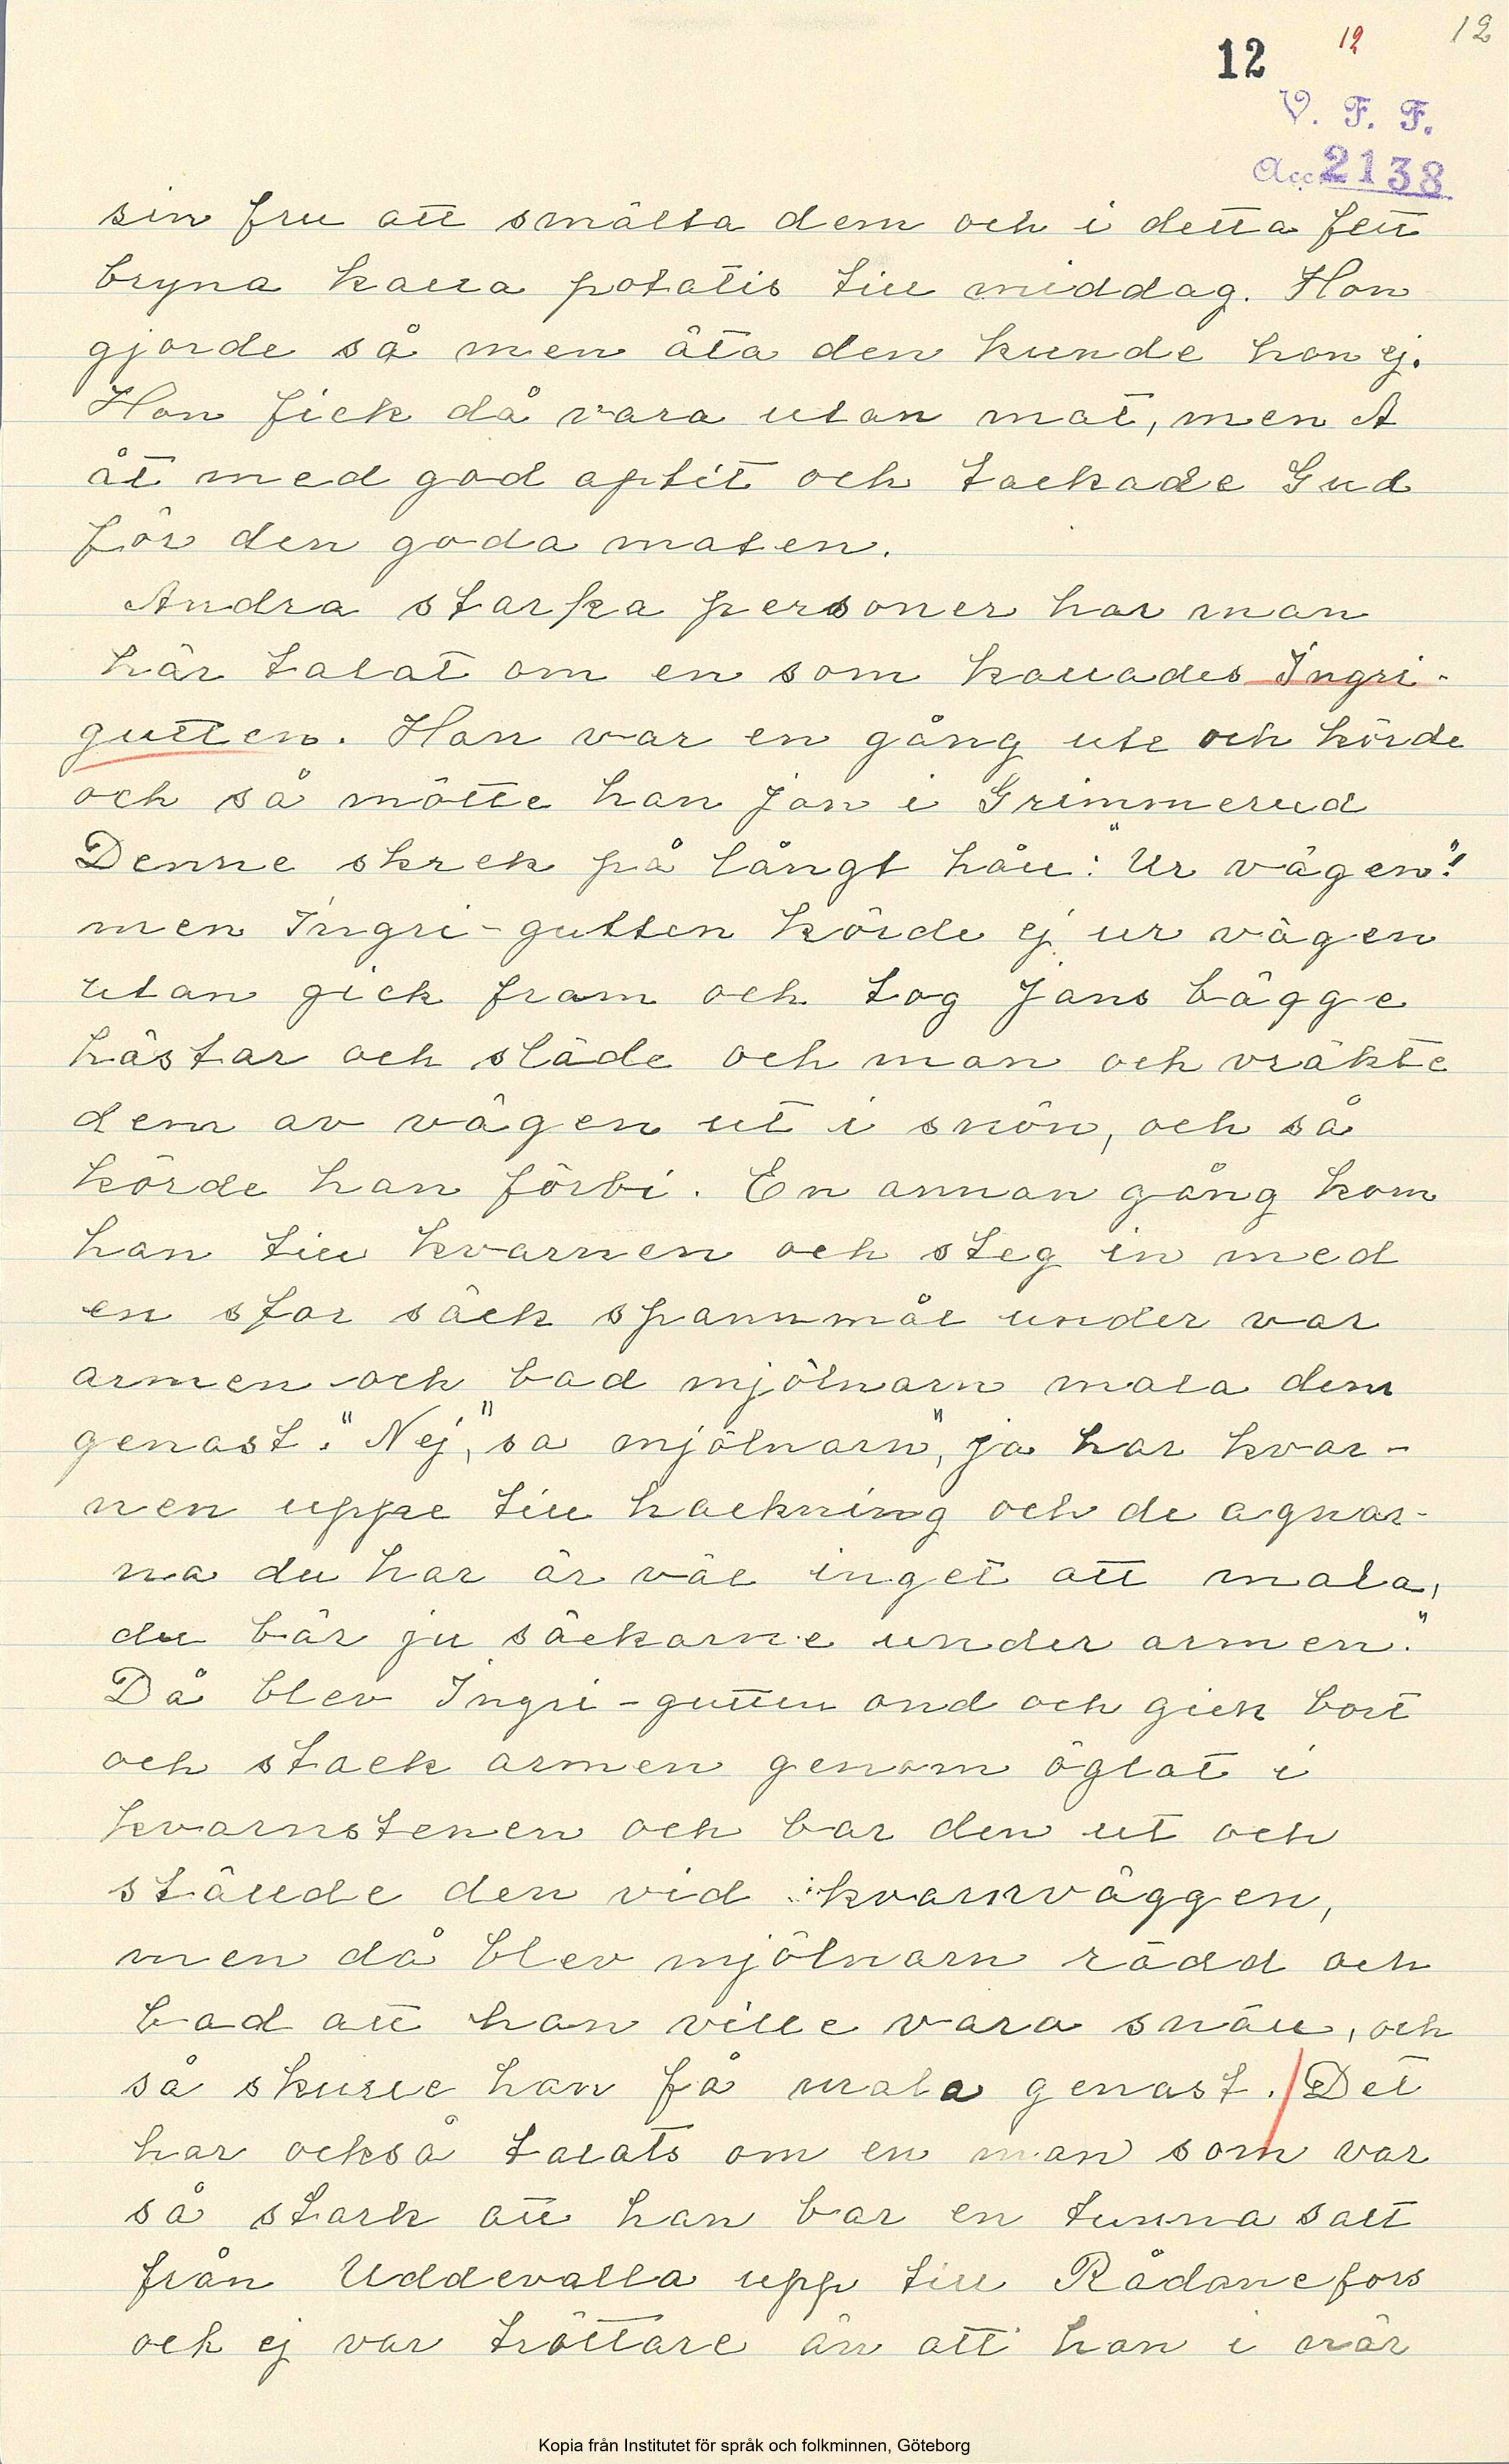 12 12 12
V. F. F.
Acc 2138
sin fru att smälta dem och i detta fett
bryna kalla potatis till middag. Hon
gjorde så men äta den kunde hon ej.
Hon fick då vara utan mat, men A
åt med god aptit och tackade Gud
för den goda maten.
Andra starka personer har man
här talat om en som kallades Ingri-
gutten. Han var en gång ute och körde
och så mötte han Jan i Grimmerud
Denne skrek på långt håll: "Ur vägen"!
men Ingri-gutten körde ej ur vägen
utan gick fram och tog Jans bägge
hästar och släde och man och vräkte
dem av vägen ut i snön, och så
körde han förbi. En annan gång kom
han till kvarnen och steg in med
en stor säck spannmål under var
armen och bad mjölnarn mala dem
genast. "Nej," sa mjölnarn, "ja har kvar-
nen uppe till hackning och de agnar-
na du har är väl inget att mala,
du bär ju säckarne under armen."
Då blev Ingri-gutten ond och gick bort
och stack armen genom öglat i
kvarnstenen och bar den ut och
ställde den vid kvarnväggen,
men då blev mjölnarn rädd och
bad att han ville vara snäll, och
så skulle han få mala genast. / Det
har också talats om en man som var
så stark att han bar en tunna salt
från Uddevalla upp till Rådanefors
och ej var tröttare än att han i när
Kopia från Institutet för språk och folkminnen, Göteborg